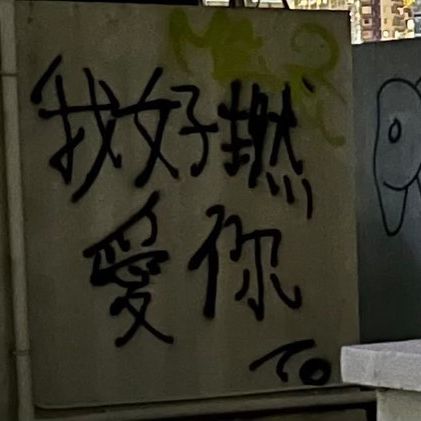 我好撚
愛你
To